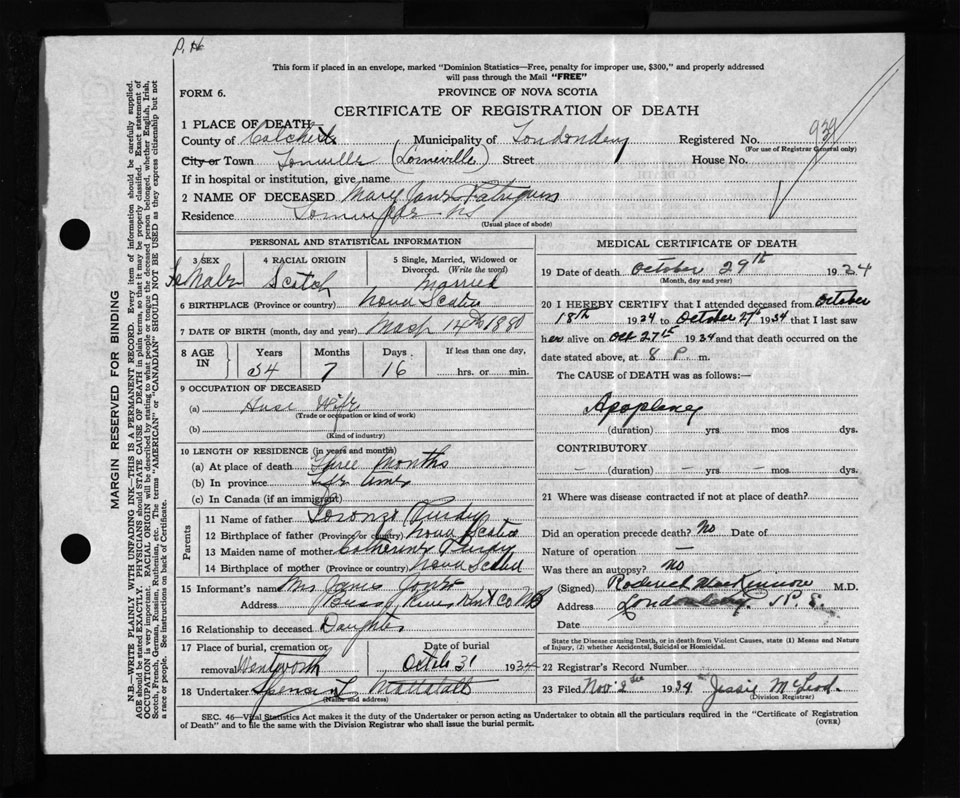 P. H
This form if placed in an envelope, marked "Dominion Statistics—Free, penalty for improper use, $300," and properly addressed
will pass through the Mail "FREE"
FORM 6.
PROVINCE OF NOVA SCOTIA
CERTIFICATE OF REGISTRATION OF DEATH
1 PLACE OF DEATH
County of Colchester Municipality of Londonderry Registered No. 939
(For use of Registrar General only)
City or Town (Lorneville) Street House No.
If in hospital or institution, give name
2 NAME OF DECEASED Mary Jane Patriquin
Residence N S
(Usual place of abode)
PERSONAL AND STATISTICAL INFORMATION
3 SEX 4 RACIAL ORIGIN 5 Single, Married, Widowed or
Divorced. (Write the word)
Fe Male Scotch Married
6 BIRTHPLACE (Province or country) Nova Scotia
7 DATE OF BIRTH (month, day and year) 14th 1880
8 AGE IN Years Months Days If less than one day,
54 7 16 hrs. or min.
9 OCCUPATION OF DECEASED
(a) House Wife
(Trade or occupation or kind of work)
(b)
(Kind of industry)
10 LENGTH OF RESIDENCE (in years and months)
(a) At place of death Three Months
(b) In province Life time
(c) In Canada (if an immigrant)
Parents
11 Name of father Lorenzo Purdy
12 Birthplace of father (Province or country) Nova Scotia
13 Maiden name of mother Catherine Purdy
14 Birthplace of mother (Province or country) Nova Scotia
15 Informant's name Mrs James Jones
Address Bass River Kent Co N B
16 Relationship to deceased Daughter
17 Place of burial, cremation or Date of burial
removal Wentworth Octob 31 1934
18 Undertaker Spencer L Mattatall
(Name and address)
MEDICAL CERTIFICATE OF DEATH
19 Date of death October 29th 1934
(Month, day and year)
20 I HEREBY CERTIFY that I attended deceased from October
18th 1934 to October 27th 1934 that I last saw
her alive on Oct 27th 1934 and that death occurred on the
date stated above, at 8 P. m.
The CAUSE of DEATH was as follows:—
Apoplexy
(duration) yrs. mos dys.
CONTRIBUTORY
— (duration) — yrs. — mos — dys.
21 Where was disease contracted if not at place of death?
Did an operation precede death? No Date of
Nature of operation —
Was there an autopsy? No
(Signed) Roderick MacKinnon M.D.
Address Londonderry N. S.
Date
State the Disease causing Death, or in death from Violent Causes, state (1) Means and Nature
of Injury, (2) whether Accidental, Suicidal or Homicidal.
22 Registrar's Record Number
23 Filed Nov 2nd 1934 Jessie McLeod
(Division Registrar)
SEC. 46—Vital Statistics Act makes it the duty of the Undertaker or person acting as Undertaker to obtain all the particulars required in the "Certificate of Registration
of Death" and to file the same with the Division Registrar who shall issue the burial permit.
(OVER)
MARGIN RESERVED FOR BINDING
N.B.—WRITE PLAINLY WITH UNFADING INK—THIS IS A PERMANENT RECORD. Every item of information should be carefully supplied.
AGE should be stated EXACTLY. PHYSICIANS should STATE CAUSE OF DEATH in plain terms, so that it may be properly classified. Exact statement of
OCCUPATION is very important. RACIAL ORIGIN will be described by stating to what people or tongue the deceased person belonged, whether English, Irish,
Scotch, French, German, Russian, Ruthenian, etc. The terms "AMERICAN" or "CANADIAN" SHOULD NOT BE USED as they express citizenship but not
a race or people. See instructions on back of Certificate.